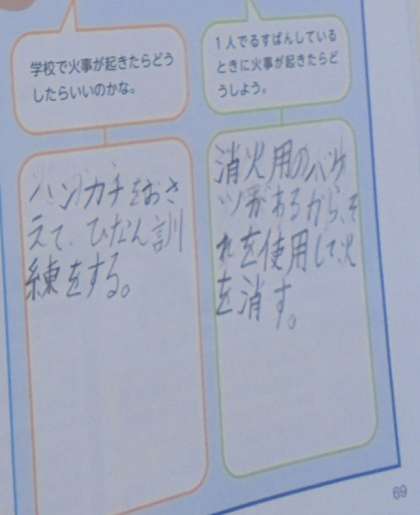 学校で火事が起きたらどう
したらいいのかな。
ハンカチをおさ
えて、ひなん訓
練をする。
1人でるすばんしている
ときに火事が起きたらど
うしよう。
消火用のバケ
ツがあるから、そ
れを使用して、火
を消す。
69